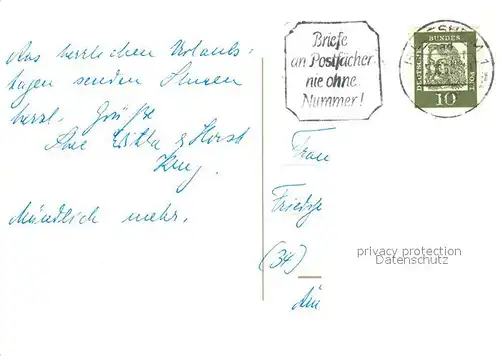 Aus herrlichen Urlaubs-
tagen senden Ihnen
herzl. Grüße
Ihre Erika & Horst
Mündlich mehr.
Briefe
an Postfächer
nie ohne
Nummer!
DEUTSCHE BUNDESPOST
10
Frau
(34)
privacy protection
Datenschutz